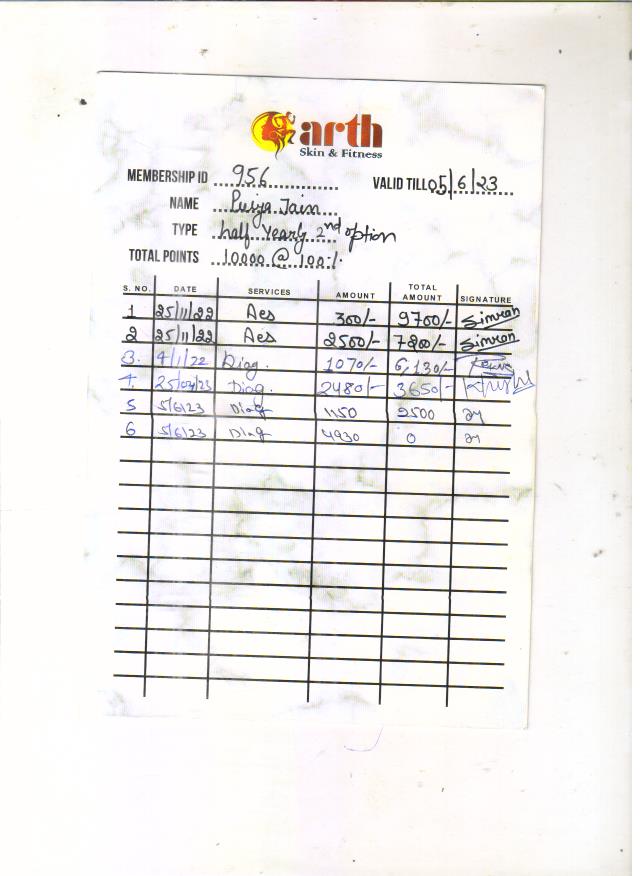 arth
Skin & Fitness
MEMBERSHIP ID 956 VALID TILL 05/6/23
NAME Puja Jain
TYPE half Yearly 2nd option
TOTAL POINTS 10000 @ 100%
S. NO. DATE SERVICES AMOUNT TOTAL AMOUNT SIGNATURE
1 25/11/22 Aes 300/- 9700/- Simran
2 25/11/22 Aes 2500/- 7200/- Simran
3. 4/1/22 Diag. 1070/- 6,130/-
4. 25/04/23 Diag. 2480/- 3650/-
5 5/6/23 Diag 1150 2500
6 5/6/23 Diag 4930 0